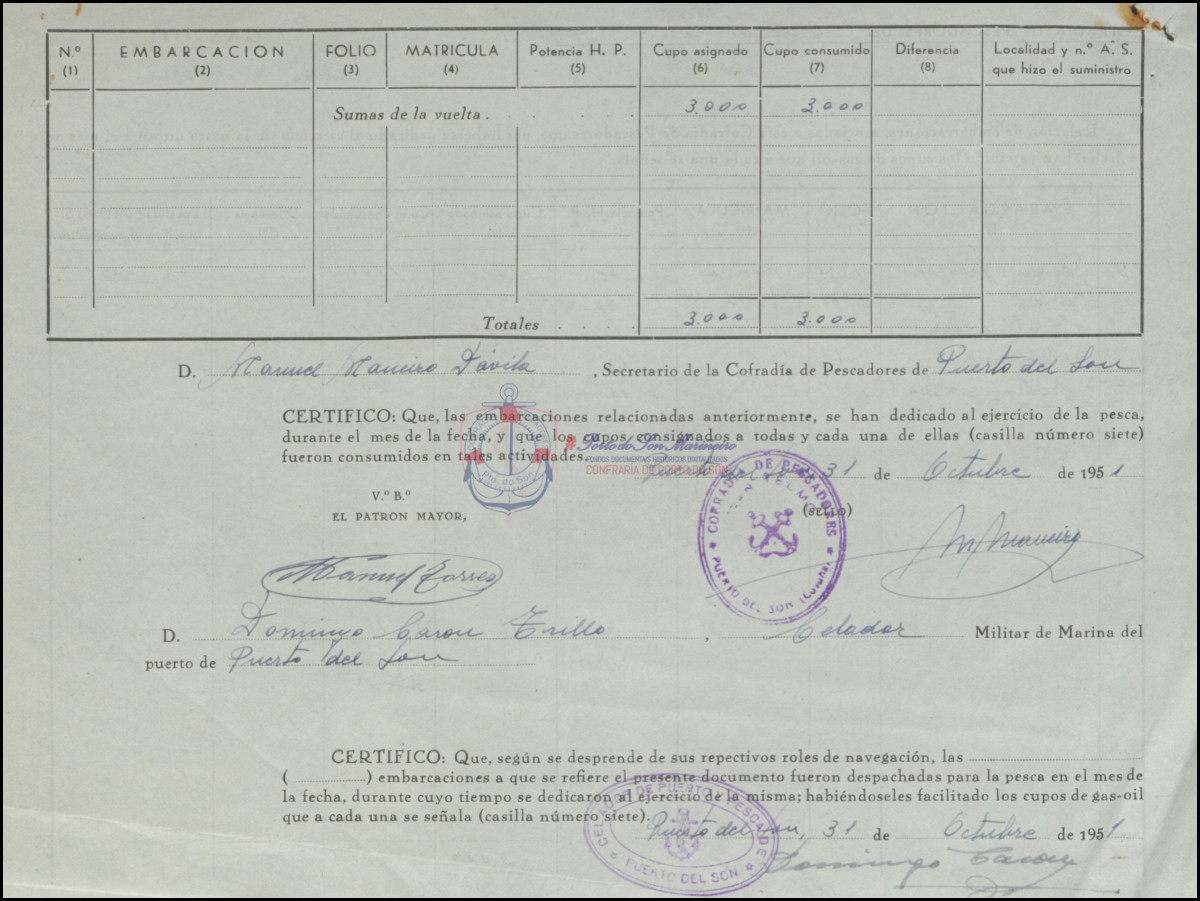 N.º EMBARCACION FOLIO MATRICULA Potencia H. P. Cupo asignado Cupo consumido Diferencia Localidad y n.º A. S.
(1) (2) (3) (4) (5) (6) (7) (8) que hizo el suministro
Sumas de la vuelta . . . . . 3.000 3.000
Totales . . . . 3.000 3.000
D. Manuel Maneiro Dávila , Secretario de la Cofradía de Pescadores de Puerto del Son
CERTIFICO: Que, las embarcaciones relacionadas anteriormente, se han dedicado al ejercicio de la pesca,
durante el mes de la fecha, y que los cupos consignados a todas y cada una de ellas (casilla número siete)
fueron consumidos en tales actividades.
Puerto del Son 31 de Octubre de 1951
#Porto do Son Marineiro
FONDOS DOCUMENTAIS HISTÓRICOS DIXITALIZADOS
CONFRARIA DE PORTO DO SON
Pto. do Son
V.º B.º
EL PATRON MAYOR,
(SELLO)
COFRADIA DE PESCADORES
SAN TELMO
PUERTO DEL SON (Coruña)
M Maneiro
Manuel Torres
D. Domingo Carou Trillo , Celador Militar de Marina del
puerto de Puerto del Son
CERTIFICO: Que, según se desprende de sus repectivos roles de navegación, las
( ) embarcaciones a que se refiere el presente documento fueron despachadas para la pesca en el mes de
la fecha, durante cuyo tiempo se dedicaron al ejercicio de la misma; habiéndoseles facilitado los cupos de gas-oil
que a cada una se señala (casilla número siete).
Puerto del Son, 31 de Octubre de 1951
CELADOR DE PUERTO Y PESCA DE
PUERTO DEL SON
Domingo Carou